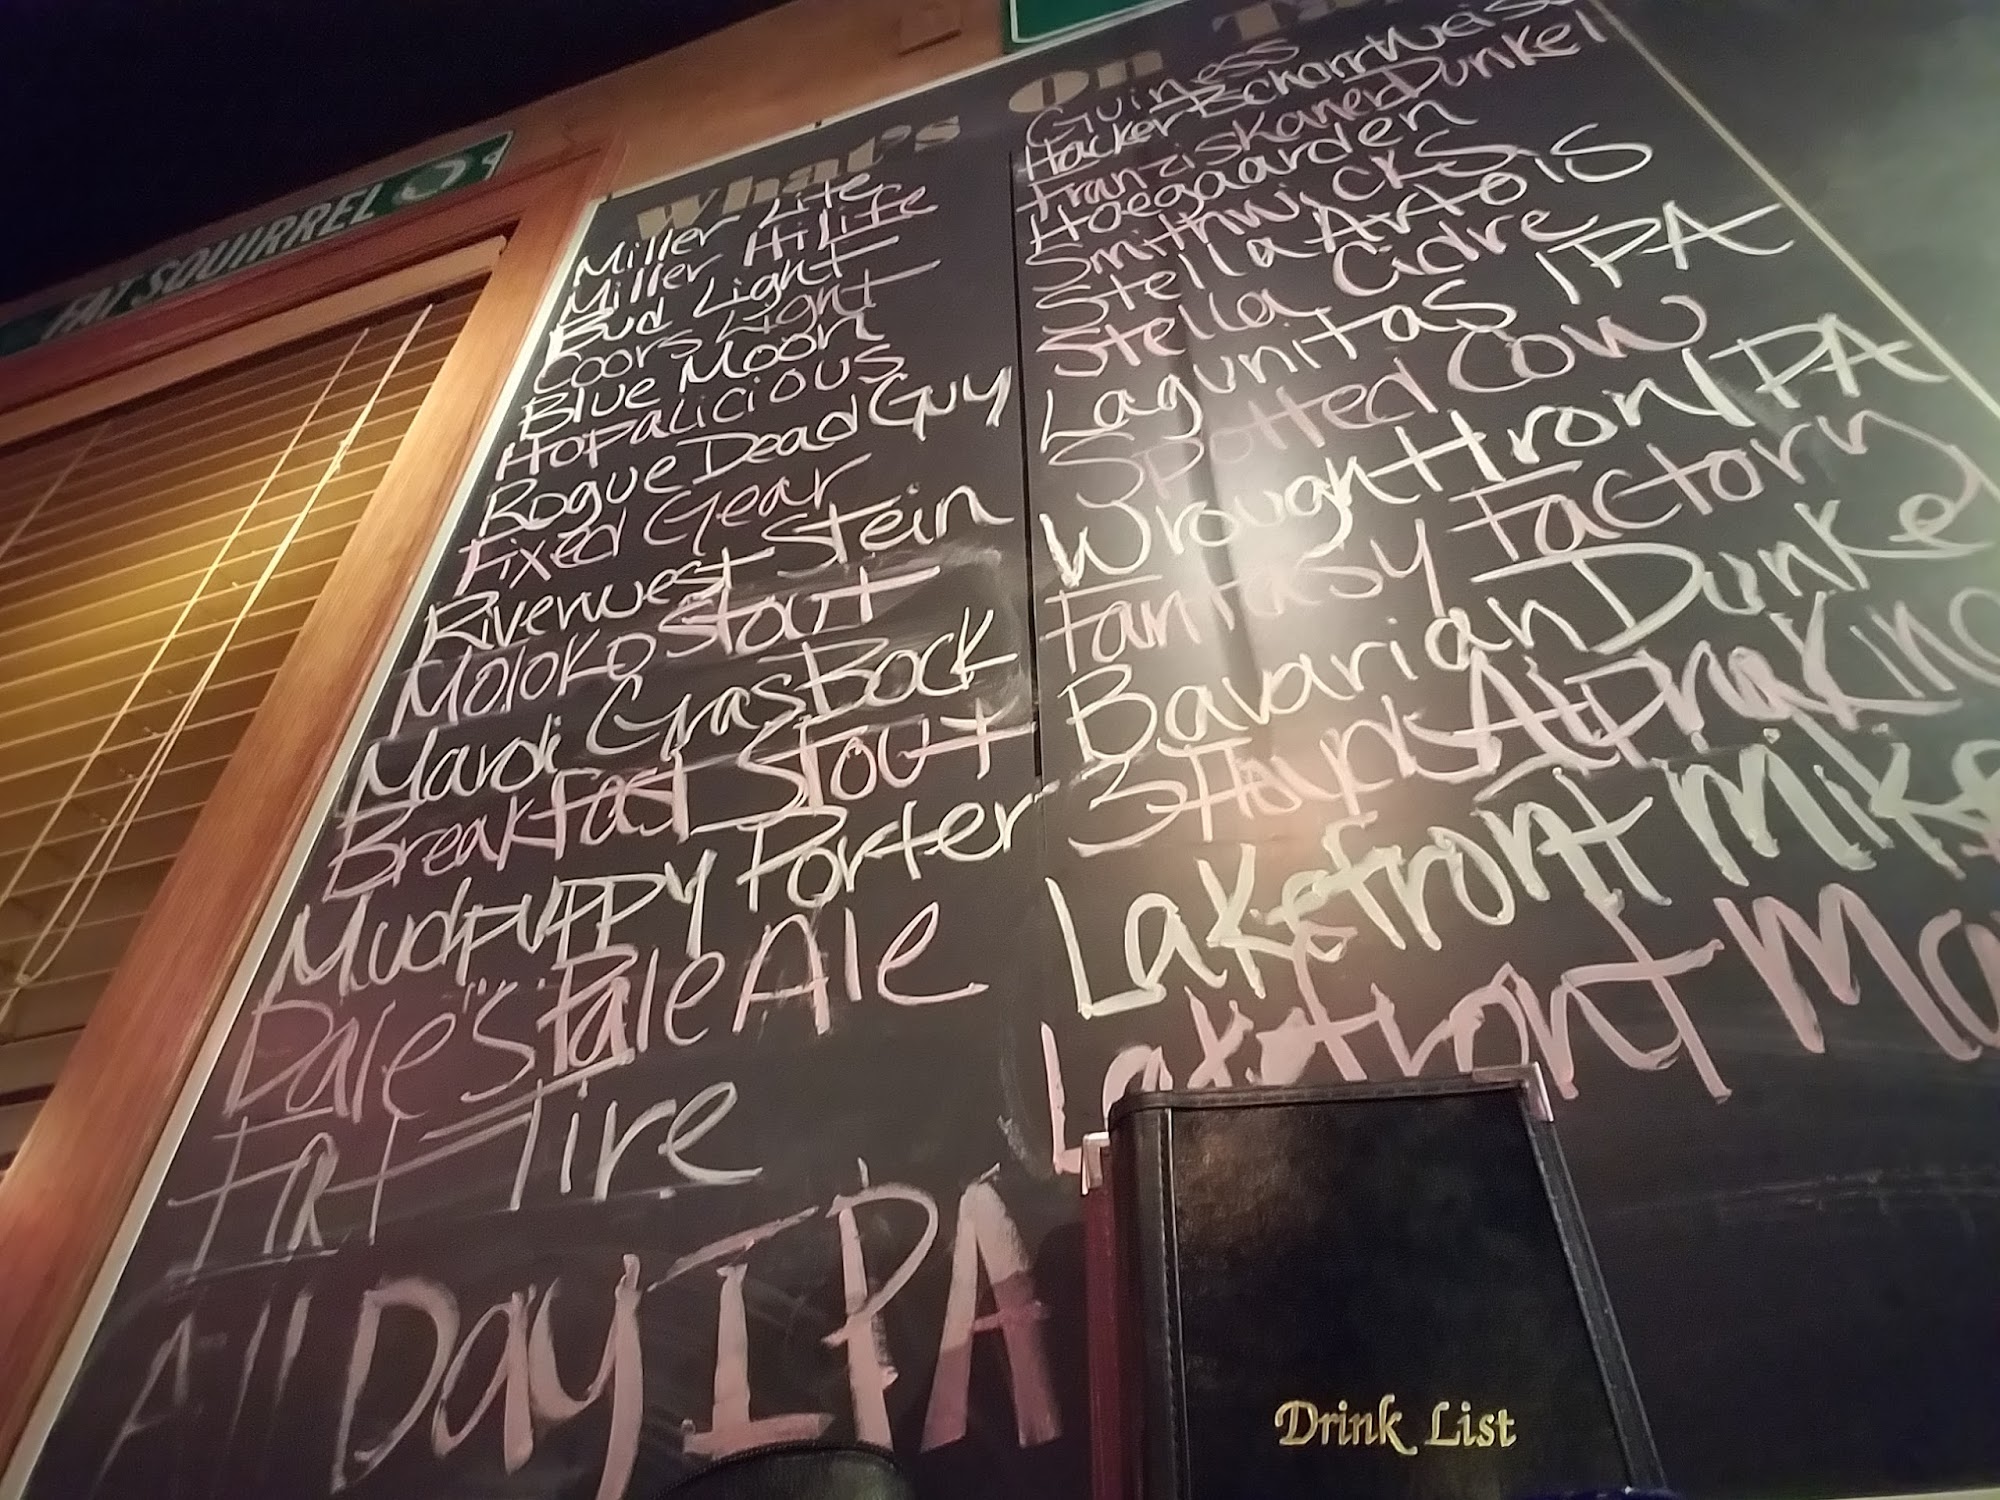 FAT SQUIRREL
What's On Tap
Miller Lite
Miller HiLife
Bud Light
Coors Light
Blue Moon
Hopalicious
Rogue Dead Guy
Fixed Gear
Riverwest Stein
Moloko Stout
Mardi Gras Bock
Breakfast Stout
Mudpuppy Porter
Dale's Pale Ale
Fat Tire
All Day IPA
Guiness
Hacker Pschorr Weisse
Franziskaner Dunkel
Hoegaarden
Smithwicks
Stella Artois
Stella Cidre
Lagunitas IPA
Spotted Cow
Wrought Iron IPA
Fantasy Factory
Bavarian Dunkel
3 Floyds Alpha King
Lakefront
Lakefront
Drink List